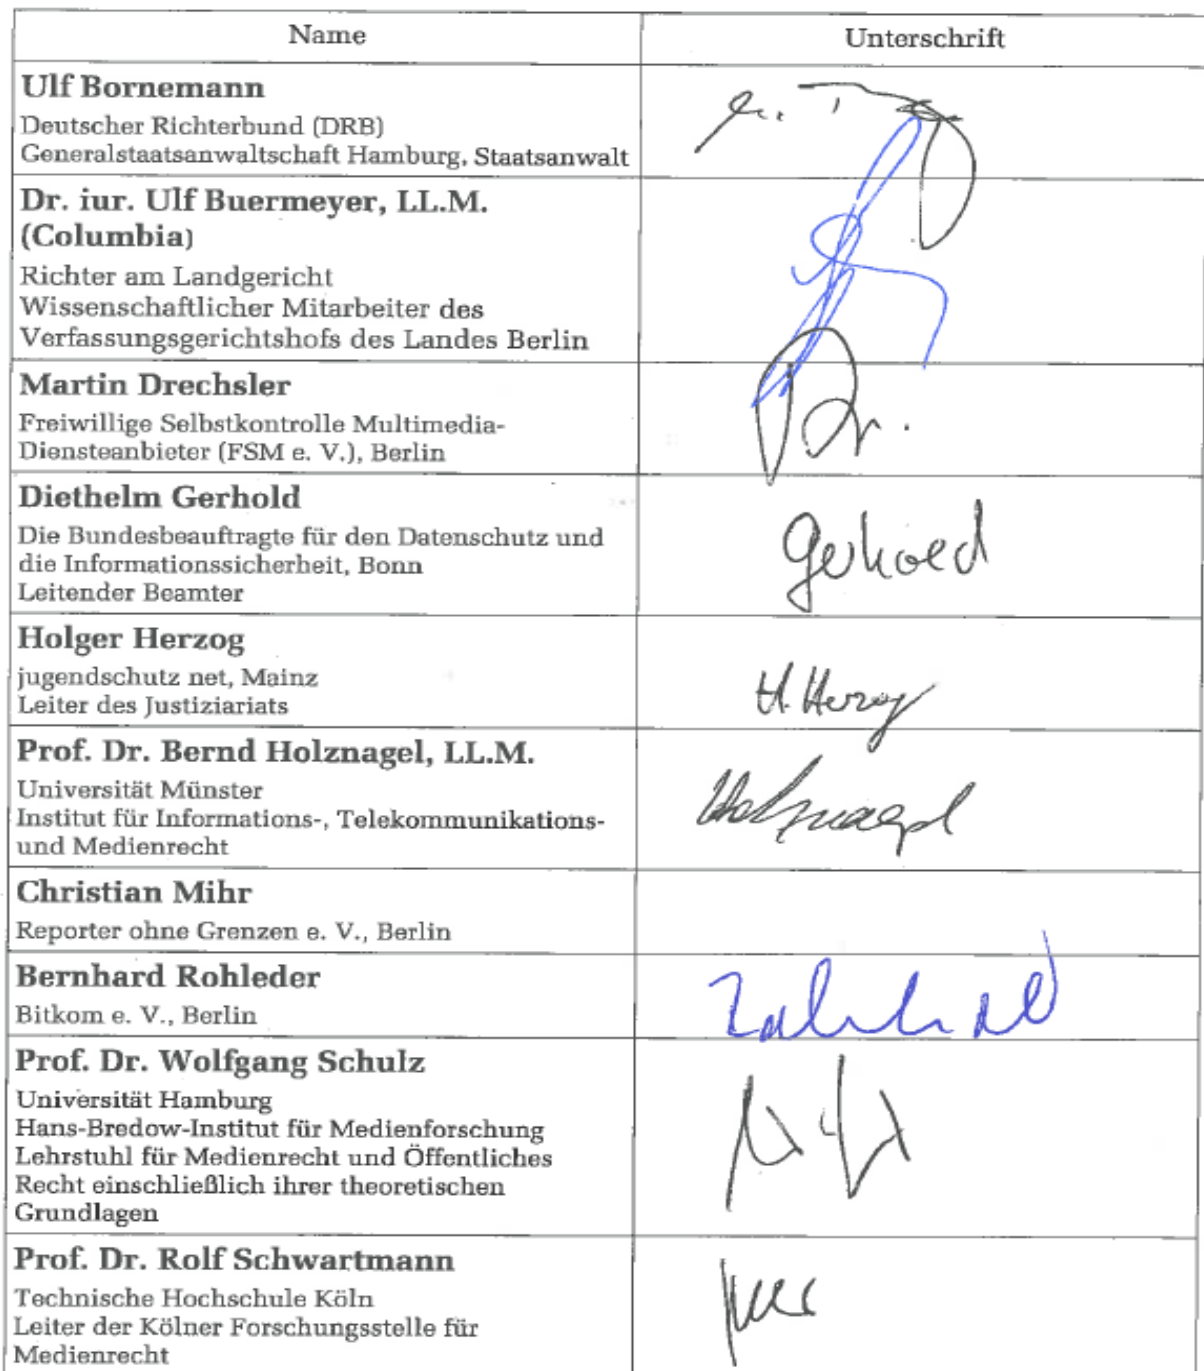 Name
Unterschrift
Ulf Bornemann
Deutscher Richterbund (DRB)
Generalstaatsanwaltschaft Hamburg, Staatsanwalt
Dr. iur. Ulf Buermeyer, LL.M.
(Columbia)
Richter am Landgericht
Wissenschaftlicher Mitarbeiter des
Verfassungsgerichtshofs des Landes Berlin
Martin Drechsler
Freiwillige Selbstkontrolle Multimedia-
Diensteanbieter (FSM e. V.), Berlin
Diethelm Gerhold
Die Bundesbeauftragte für den Datenschutz und
die Informationssicherheit, Bonn
Leitender Beamter
Gerhold
Holger Herzog
jugendschutz net, Mainz
Leiter des Justiziariats
H. Herzog
Prof. Dr. Bernd Holznagel, LL.M.
Universität Münster
Institut für Informations-, Telekommunikations-
und Medienrecht
Holznagel
Christian Mihr
Reporter ohne Grenzen e. V., Berlin
Bernhard Rohleder
Bitkom e. V., Berlin
Prof. Dr. Wolfgang Schulz
Universität Hamburg
Hans-Bredow-Institut für Medienforschung
Lehrstuhl für Medienrecht und Öffentliches
Recht einschließlich ihrer theoretischen
Grundlagen
Prof. Dr. Rolf Schwartmann
Technische Hochschule Köln
Leiter der Kölner Forschungsstelle für
Medienrecht